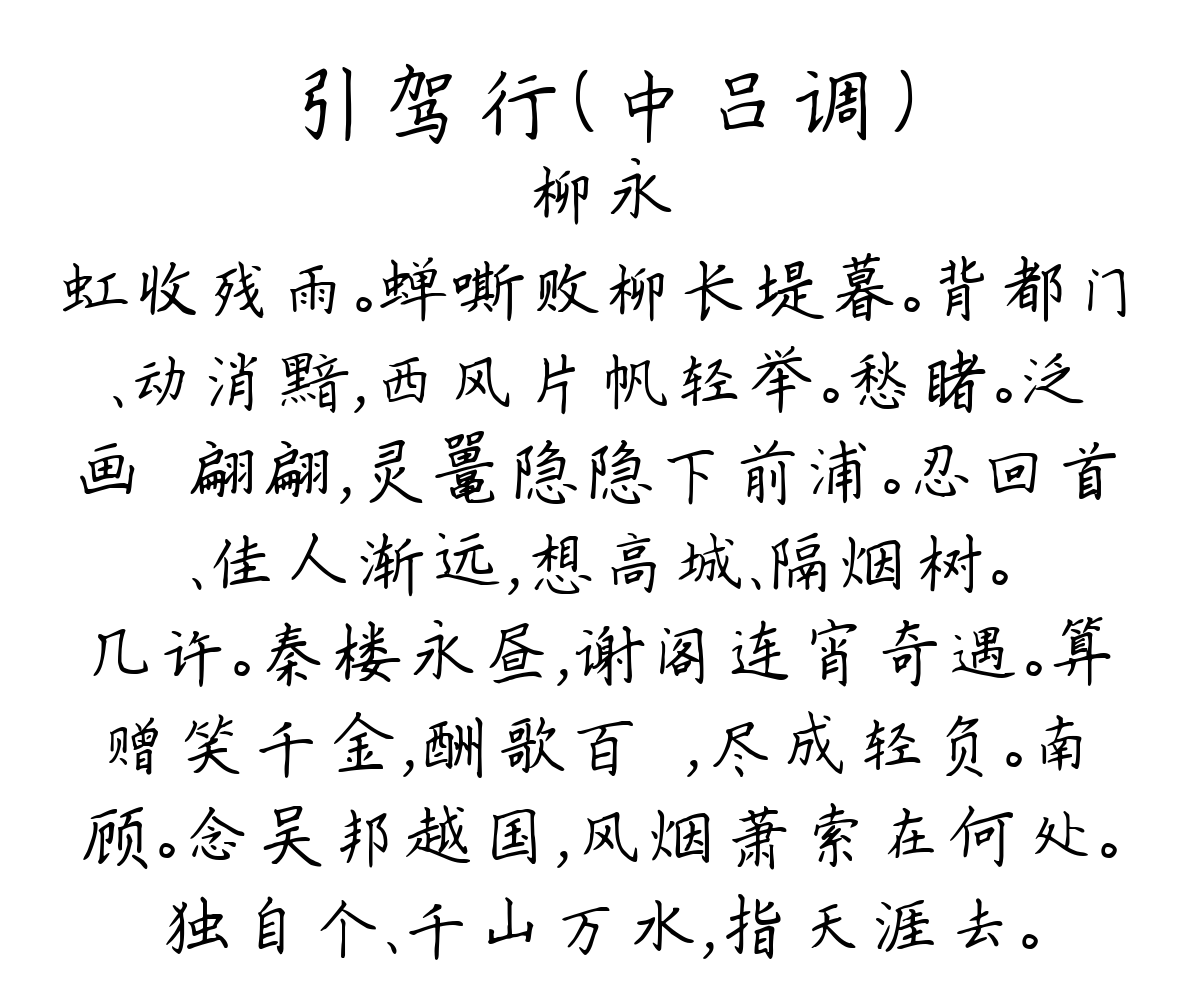 引驾行(中吕调)
柳永
虹收残雨。蝉嘶败柳长堤暮。背都门
、动消黯,西风片帆轻举。愁睹。泛
画 翩翩,灵鼍隐隐下前浦。忍回首
、佳人渐远,想高城、隔烟树。
几许。秦楼永昼,谢阁连宵奇遇。算
赠笑千金,酬歌百 ,尽成轻负。南
顾。念吴邦越国,风烟萧索在何处。
独自个、千山万水,指天涯去。